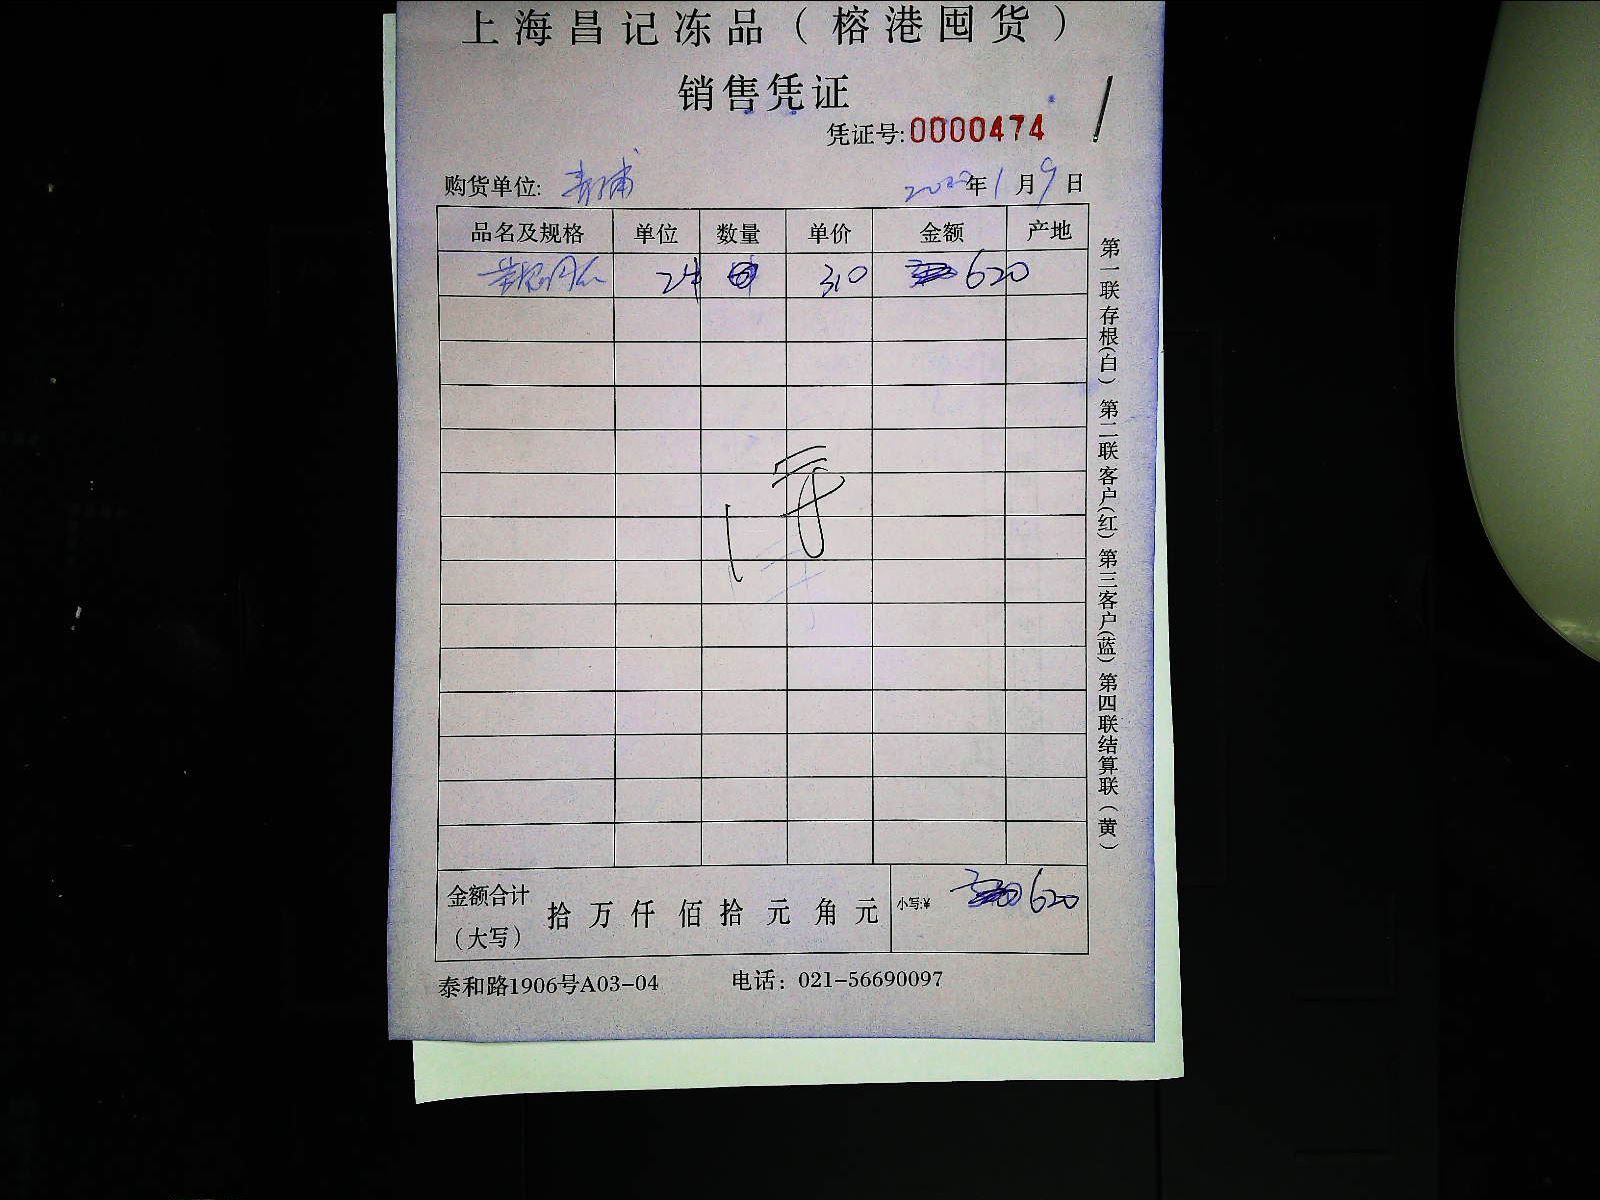 上海昌记冻品（榕港囤货）
销售凭证
凭证号:0000474
购货单位: 青浦 年1月9日
品名及规格 单位 数量 单价 金额 产地
2件 310 620
金额合计（大写） 拾 万 仟 佰 拾 元 角 元 小写:¥ 620
泰和路1906号A03-04 电话：021-56690097
第一联存根（白）第二联客户（红）第三客户（蓝）第四联结算联（黄）